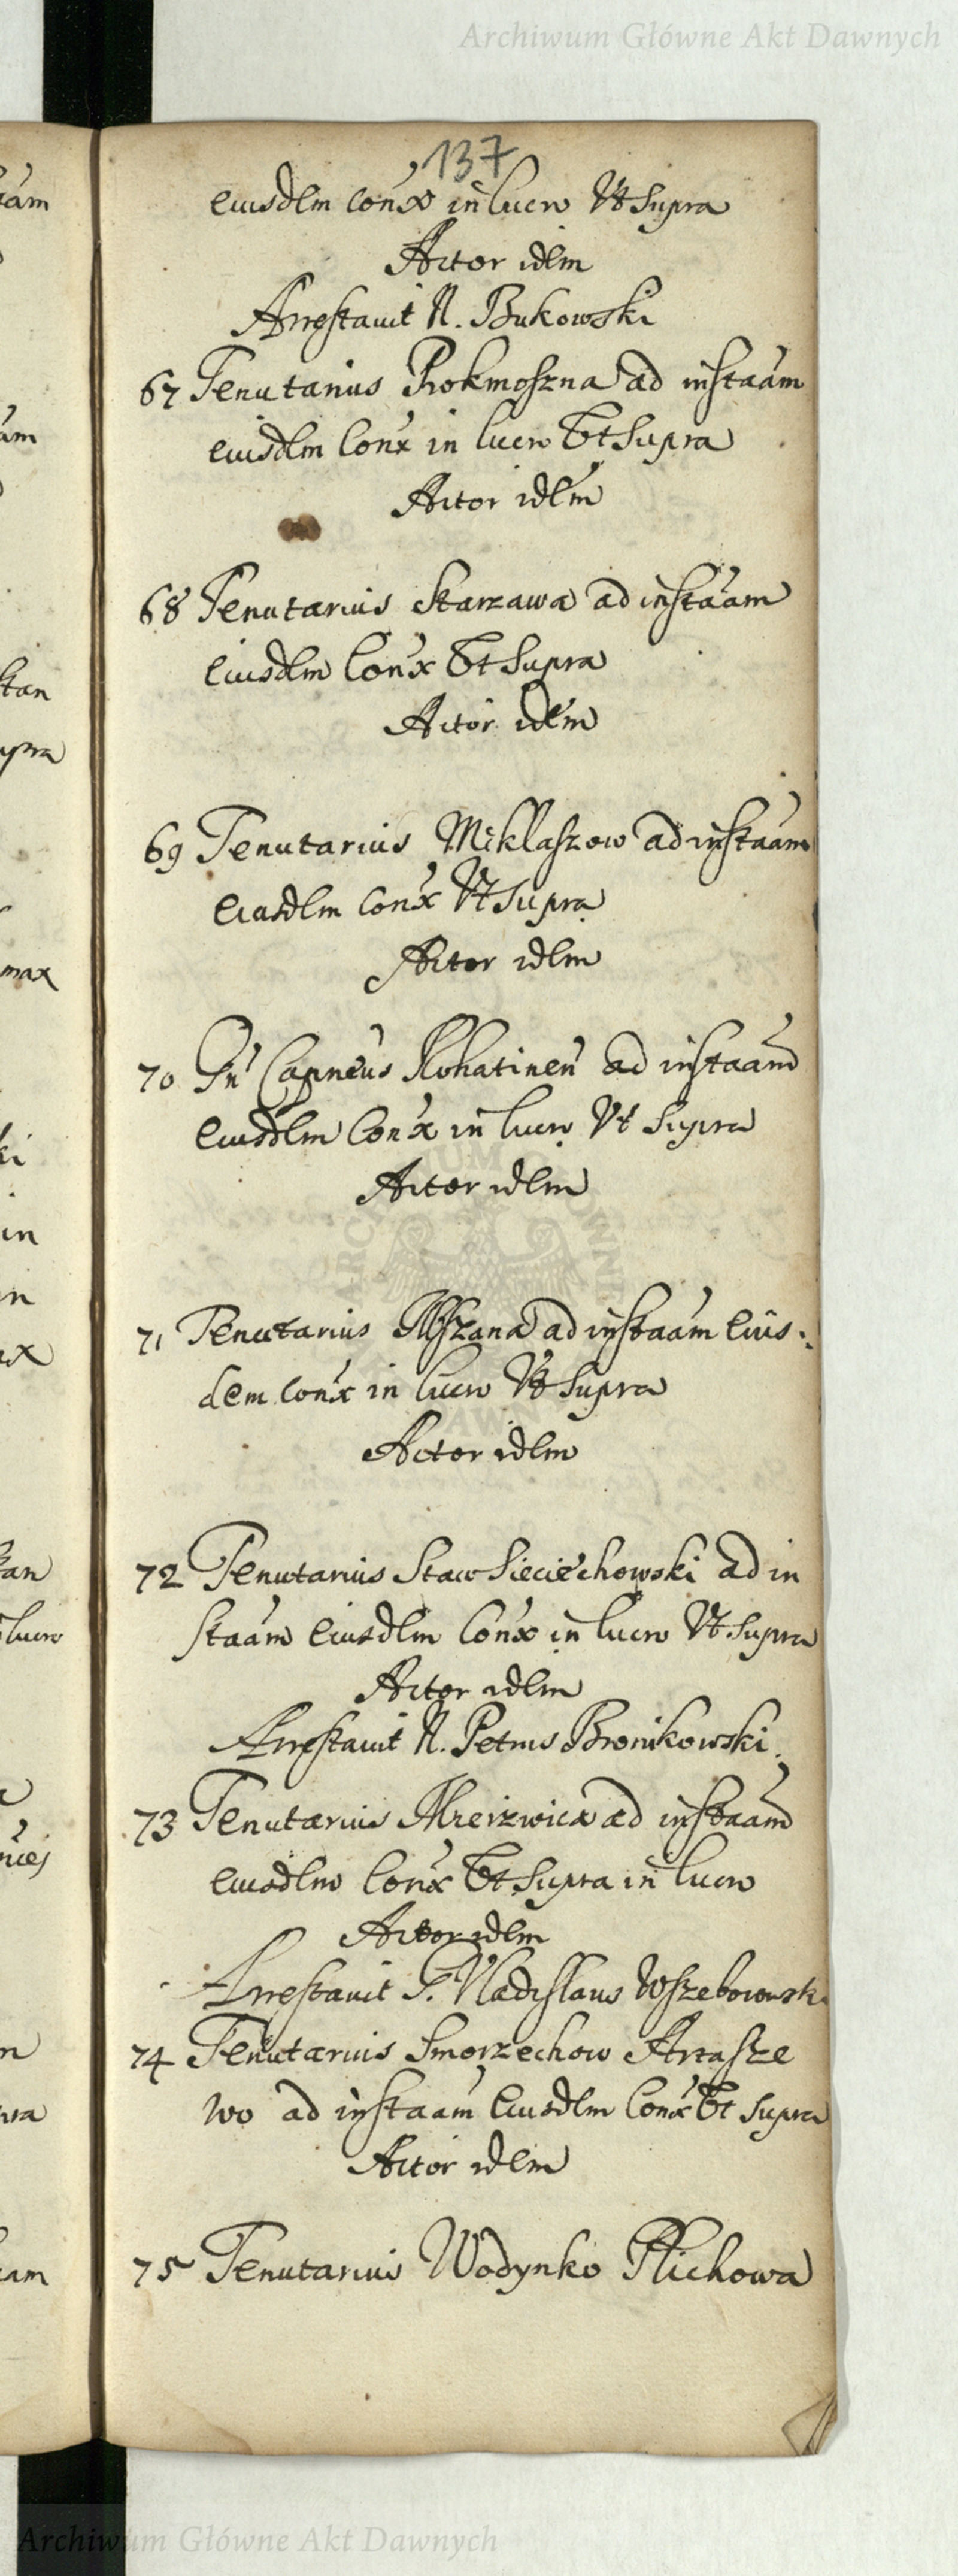 Archiwum Główne Akt Dawnych
137
eiusdem con'x in lucro Vt Supra
Actor idem
Arrestavit N. Bukowski
67 Tenutarius Rokmoszna ad instaãm
eiusdlm Con'x in lucro Vt Supra
Actor idem
68 Tenutarius Starzawa ad instaãm
Eiusdlm Con'x Vt Supra
Actor idem
69 Tenutarius Miklaszow ad instaãm
Eiusdlm Con'x Vt Supra
Actor idlm
70 Gn' Capneus Rohatinen' ad instaãm
Eiusdlm Con'x in lucro Vt Supra
Actor idlm
71 Tenutarius Mszana ad instaãm Eius:
dem con'x in lucro Vt Supra
Actor idlm
72 Tenutarius Staw Sieciechowski ad in
staãm Eiusdlm Con'x in lucro Vt Supra
Actor idlm
Arrestavit N. Petrus Bronikowski.
73 Tenutarius ad instaãm
Eiusdlm Con'x Vt Supra in lucro
Actor idlm
Arrestavit G. Vladislaus
74 Tenutarius Smorzechow Artasze
wo ad instaãm Eiusdlm Con'x Vt Supra
Actor idlm
75 Tenutarius Wodynko Plichowa
Archiwum Główne Akt Dawnych